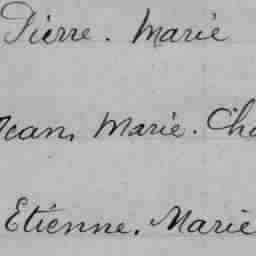 Pierre. Marie
Jean, Marie. Cha
Etienne. Marie